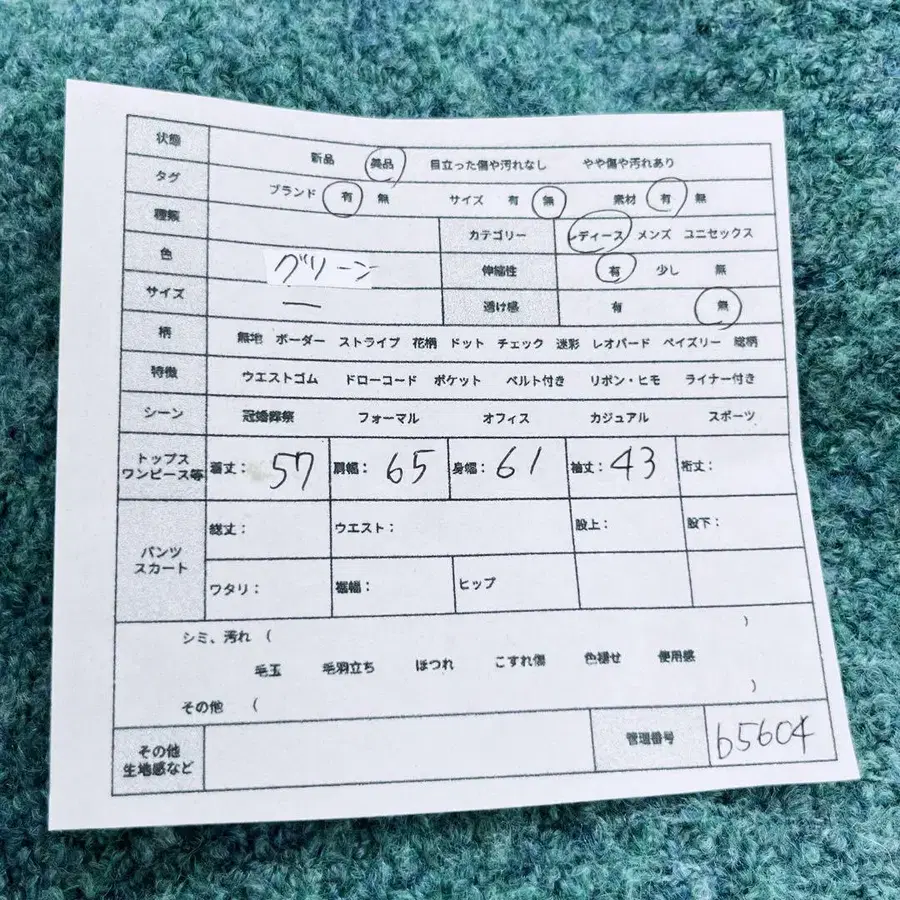 状態 新品 美品 目立った傷や汚れなし やや傷や汚れあり
タグ ブランド 有 無 サイズ 有 無 素材 有 無
種類 カテゴリー レディース メンズ ユニセックス
色 グリーン 伸縮性 有 少し 無
サイズ ー 透け感 有 無
柄 無地 ボーダー ストライプ 花柄 ドット チェック 迷彩 レオパード ペイズリー 総柄
特徴 ウエストゴム ドローコード ポケット ベルト付き リボン・ヒモ ライナー付き
シーン 冠婚葬祭 フォーマル オフィス カジュアル スポーツ
トップス
ワンピース等 着丈: 57 肩幅: 65 身幅: 61 袖丈: 43 裄丈:
パンツ
スカート 総丈: ウエスト: 股上: 股下:
ワタリ: 裾幅: ヒップ
シミ、汚れ ( )
毛玉 毛羽立ち ほつれ こすれ傷 色褪せ 使用感
その他 ( )
その他
生地感など 管理番号 b5604